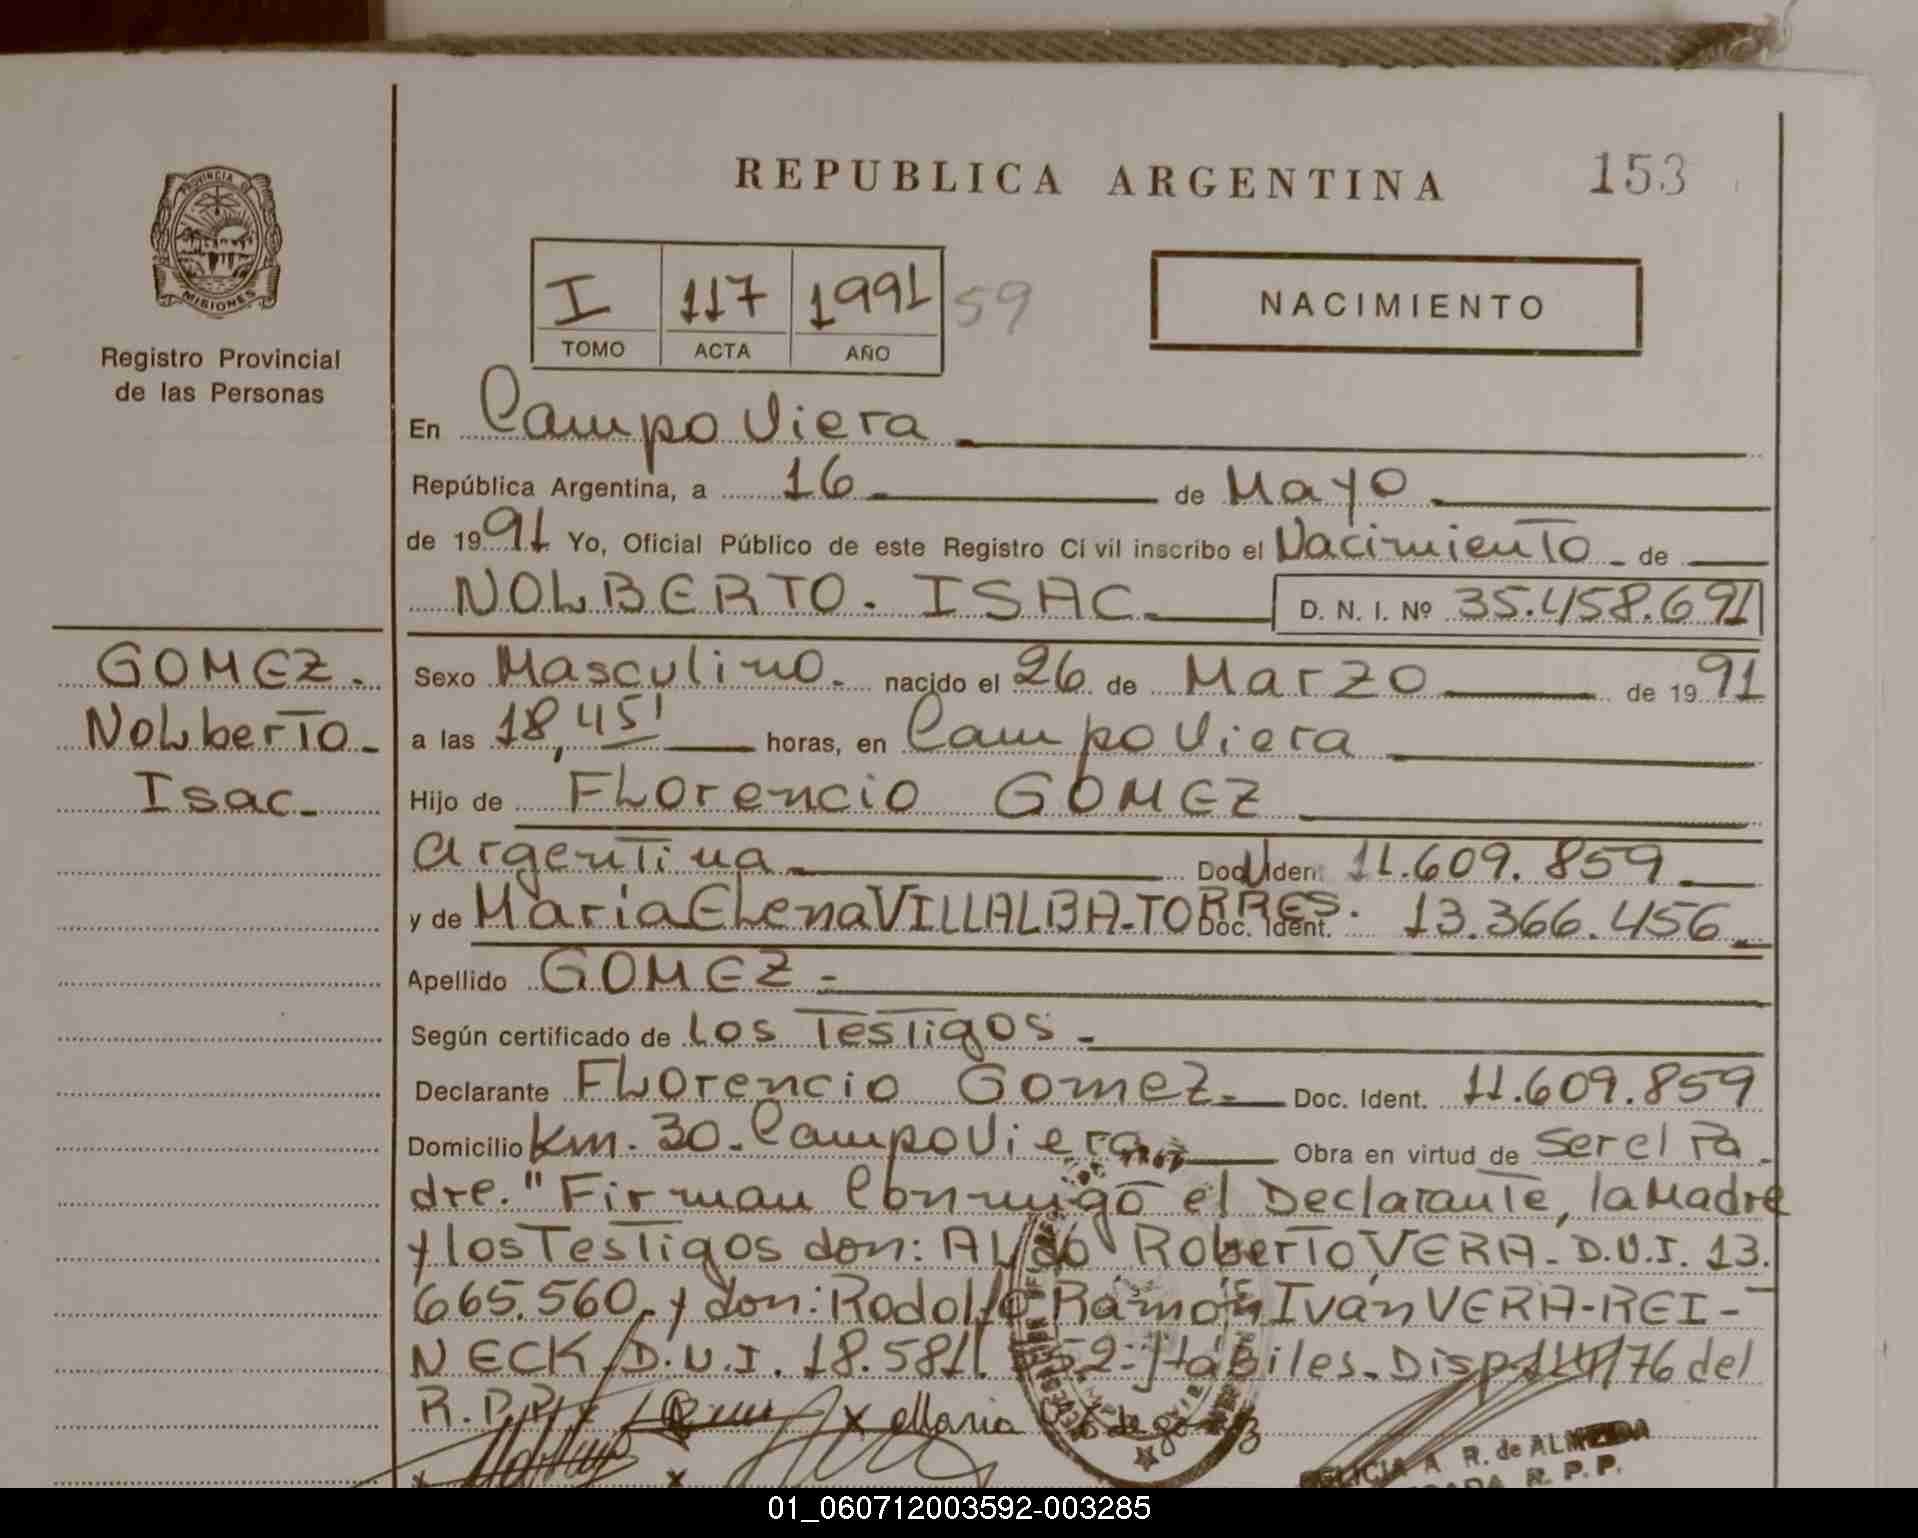 REPUBLICA ARGENTINA
153
PROVINCIA DE
MISIONES
Registro Provincial
de las Personas
I 117 1991 59
TOMO ACTA AÑO
NACIMIENTO
En Campo Viera
República Argentina, a 16 de Mayo
de 1991 Yo, Oficial Público de este Registro Civil inscribo el Nacimiento de
NOLBERTO. ISAC. D. N. I. Nº 35.458.691
GOMEZ.
Nolberto
Isac
Sexo Masculino. nacido el 26 de Marzo de 1991
a las 18,45' horas, en Campo Viera
Hijo de Florencio GOMEZ
argentina Doc. Ident. 11.609.859
y de María Elena VILLALBA-TORRES. Doc. Ident. 13.366.456
Apellido GOMEZ
Según certificado de los Testigos
Declarante Florencio Gomez. Doc. Ident. 11.609.859
Domicilio Km. 30. Campo Viera Obra en virtud de ser el Pa
dre." Firman Conmigo el Declarante, la Madre
y los Testigos don: Aldo Roberto VERA- D.N.I. 13.
665.560. y don: Rodolfo Ramón Iván VERA-REI-
NECK. D.N.I. 18.581. 52-Hábiles. Disp. /76 del
R.P.P.
x Maria
x x
R. de ALMEIDA
R. P. P.
01_060712003592-003285